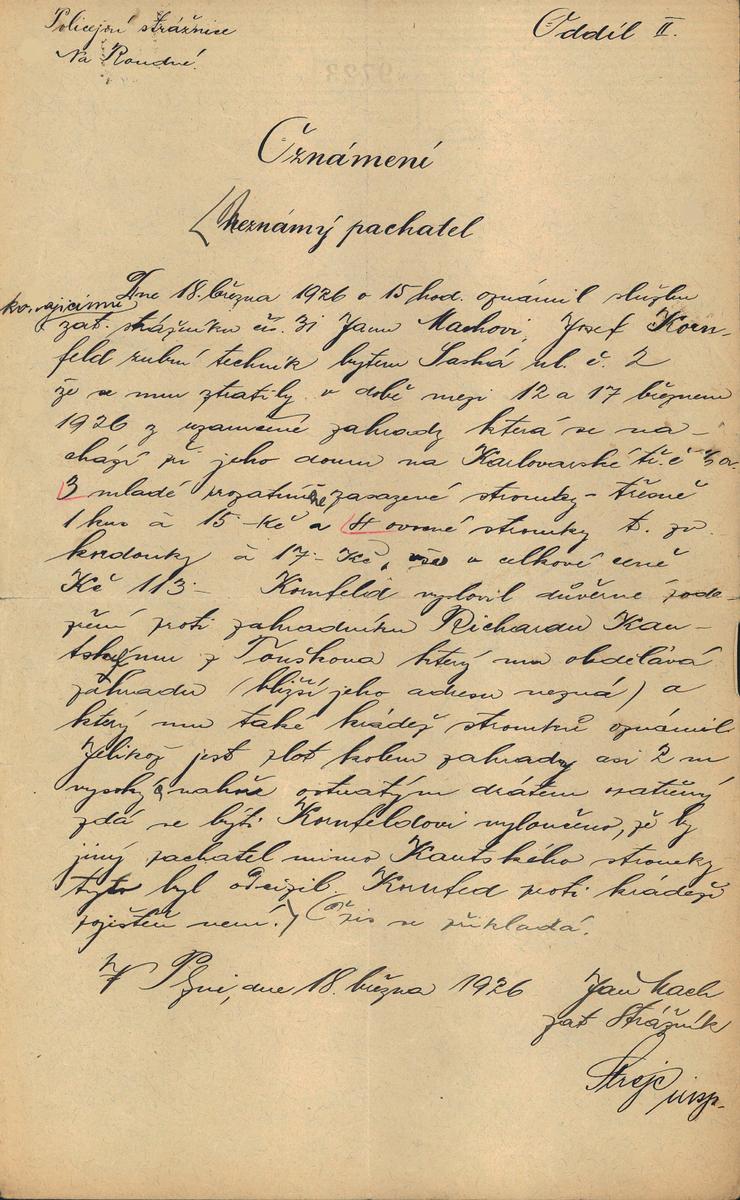 Policejní strážnice
Oddíl II.
Na Roudné.
Oznámení
Neznámý pachatel
Dne 18. března 1926 o 15 hod. oznámil službu
konajicimu
zat. strážníku čís. 31 Janu Machovi, Josef Korn-
feld zubní technik bytem Saská ul. č. 2
že se mu ztratily v době mezi 12 a 17 březnem
1926 z uzamčené zahrady která se na-
chází při jeho domu na Karlovarské tř. č
3 mladé prozatimně zasazené stromky - třešně
1 kus à 15 - Kč a 4 ovocné stromky t. zv.
kordonky à 17 - Kč, vše v celkové ceně
Kč 113 - Kornfeld vyslovil důvěrné pode-
zření proti zahradníku Richardu Kau-
tskému z Touškova který mu obdělává
zahradu (bližší jeho adresu nezná) a
který mu také krádež stromků oznámil
Jelikož jest plot kolem zahrady asi 2 m
vysoký a nahoře ostnatým drátem opatřený
zdá se býti Kornfeldovi vyloučeno, že by
jiný pachatel mimo Kautského stromky
tyto byl odcizil. Kornfed proti krádeži
pojištěn není. Opis se přikládá.
V Plzni, dne 18. března 1926
Jan Mach
zat Strážník
insp.